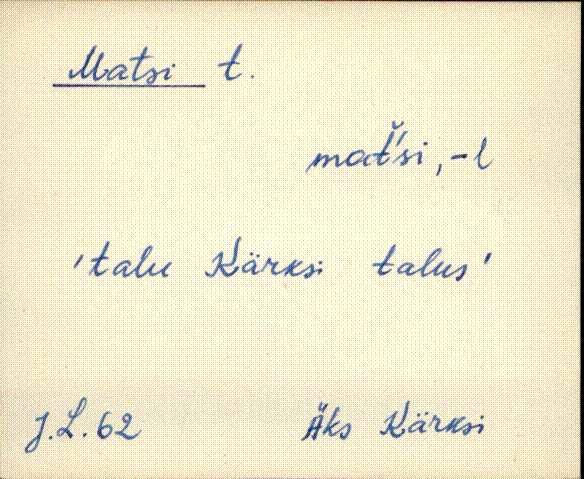 Matsi t.
mat̆'si, -l
'talu Kärksi talus'
J.L.62 Äks Kärksi